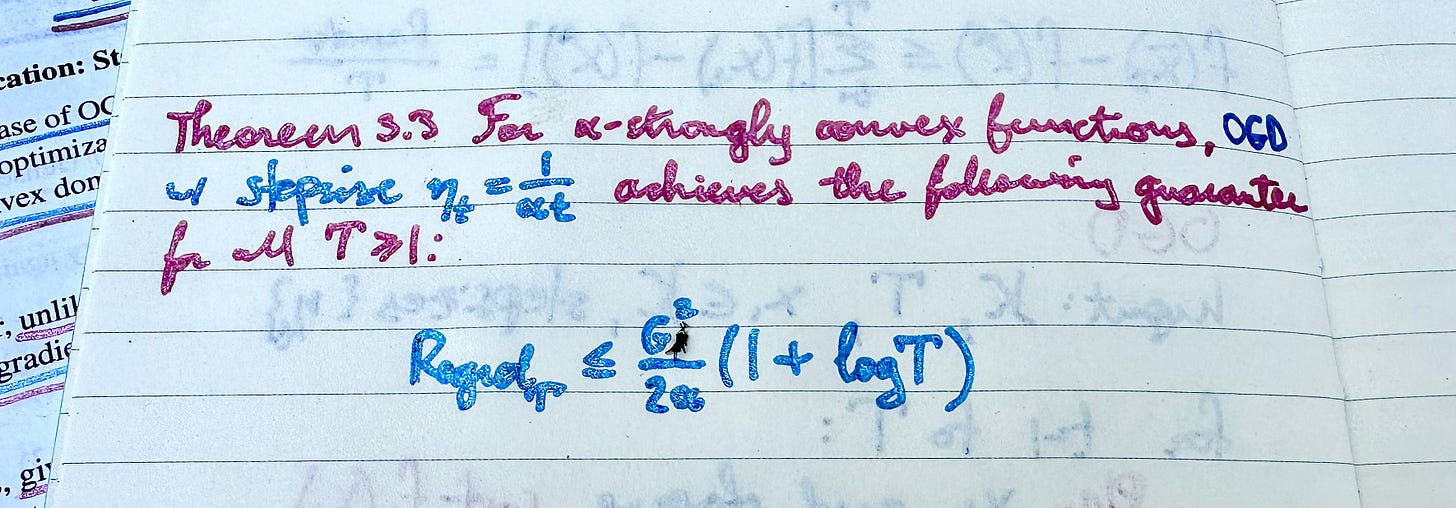 cation: St
ase of OG
optimiza
vex don
, unlik
gradie
., giv
Theorem 3.3 For α-strongly convex functions, OGD
w/ stepsize η_t = 1/αt achieves the following guarantee
for all T ≥ 1:
Regret_T ≤ G²/2α (1 + log T)